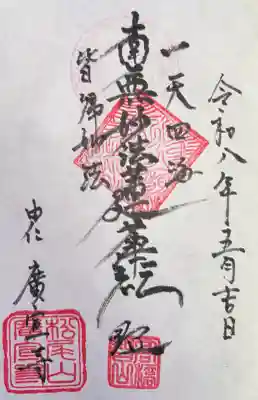 令和八年五月吉日
一天四海
南無妙法蓮華経
皆帰妙法
由仁 廣宣寺
松尾山